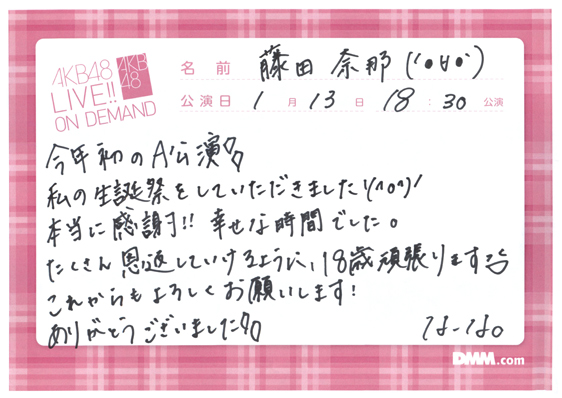 AKB48
LIVE!!
ON DEMAND
AKB
48
名前 藤田 奈那 (´•∀•`)
公演日 1月13日 18:30公演
今年初のA公演
私の生誕祭をしていただきました!(^o^)/
本当に感謝!! 幸せな時間でした。
たくさん恩返していけるように、18歳頑張ります
これからもよろしくお願いします!
ありがとうございました
なーな。
DMM.com